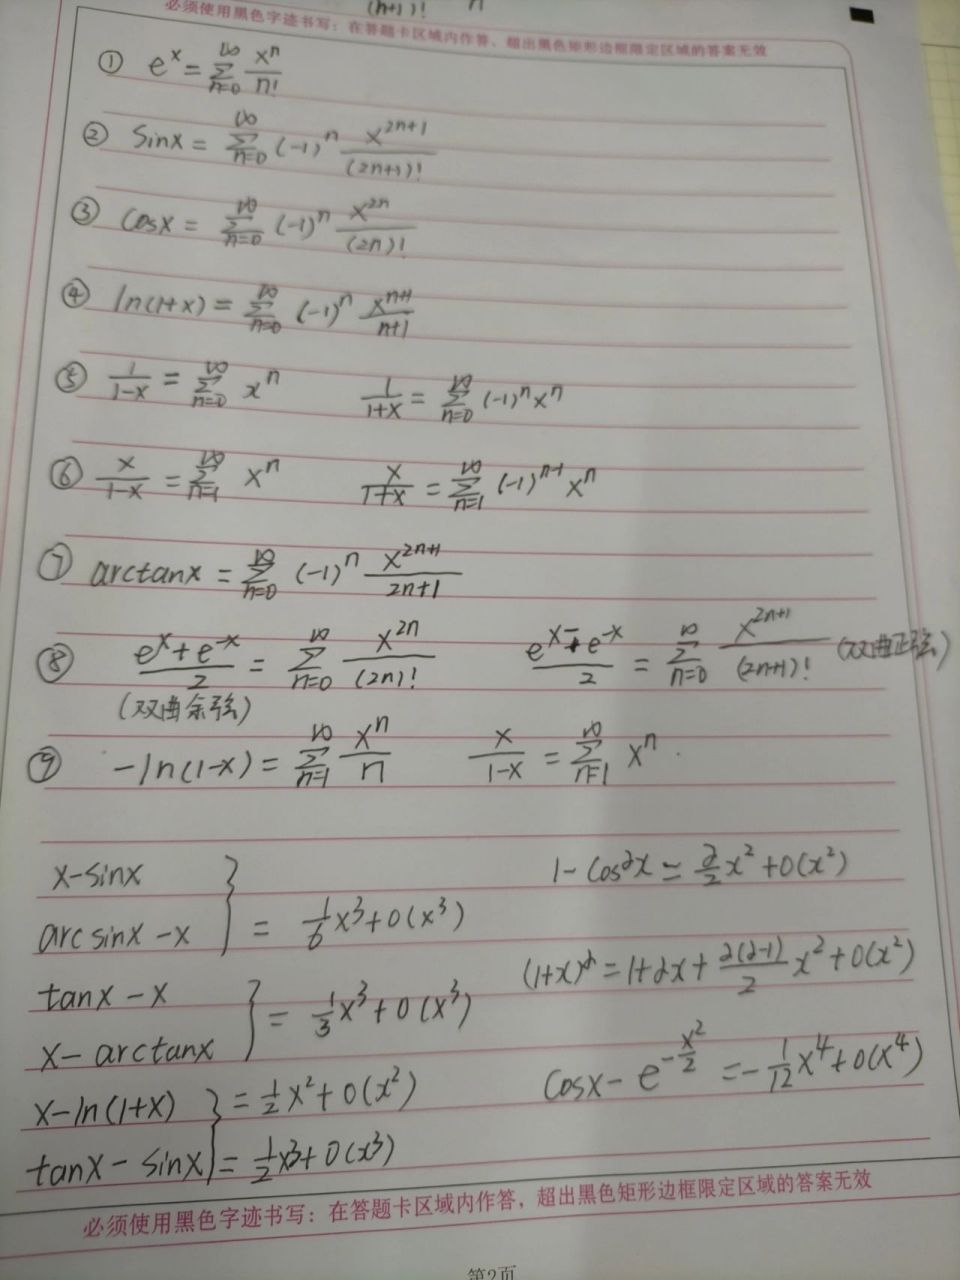 (n+1)! n
必须使用黑色字迹书写：在答题卡区域内作答、超出黑色矩形边框限定区域的答案无效
① e^x = ∑_{n=0}^{∞} x^n/n!
② sinx = ∑_{n=0}^{∞} (-1)^n x^{2n+1}/(2n+1)!
③ cosx = ∑_{n=0}^{∞} (-1)^n x^{2n}/(2n)!
④ ln(1+x) = ∑_{n=0}^{∞} (-1)^n x^{n+1}/n+1
⑤ 1/1-x = ∑_{n=0}^{∞} x^n 1/1+x = ∑_{n=0}^{∞} (-1)^n x^n
⑥ x/1-x = ∑_{n=1}^{∞} x^n x/1+x = ∑_{n=1}^{∞} (-1)^{n-1} x^n
⑦ arctanx = ∑_{n=0}^{∞} (-1)^n x^{2n+1}/2n+1
⑧ e^x+e^{-x}/2 = ∑_{n=0}^{∞} x^{2n}/(2n)! e^x-e^{-x}/2 = ∑_{n=0}^{∞} x^{2n+1}/(2n+1)! (双曲正弦)
(双曲余弦)
⑨ -ln(1-x) = ∑_{n=1}^{∞} x^n/n x/1-x = ∑_{n=1}^{∞} x^n.
x-sinx
arcsinx-x } = 1/6 x^3+o(x^3)
1-cos^α x = α/2 x^2+o(x^2)
tanx-x
x-arctanx } = 1/3 x^3+o(x^3)
(1+x)^α = 1+αx+ α(α-1)/2 x^2+o(x^2)
x-ln(1+x) } = 1/2 x^2+o(x^2)
tanx-sinx = 1/2 x^3+o(x^3)
cosx-e^{-x^2/2} = -1/12 x^4+o(x^4)
必须使用黑色字迹书写：在答题卡区域内作答，超出黑色矩形边框限定区域的答案无效
第2页